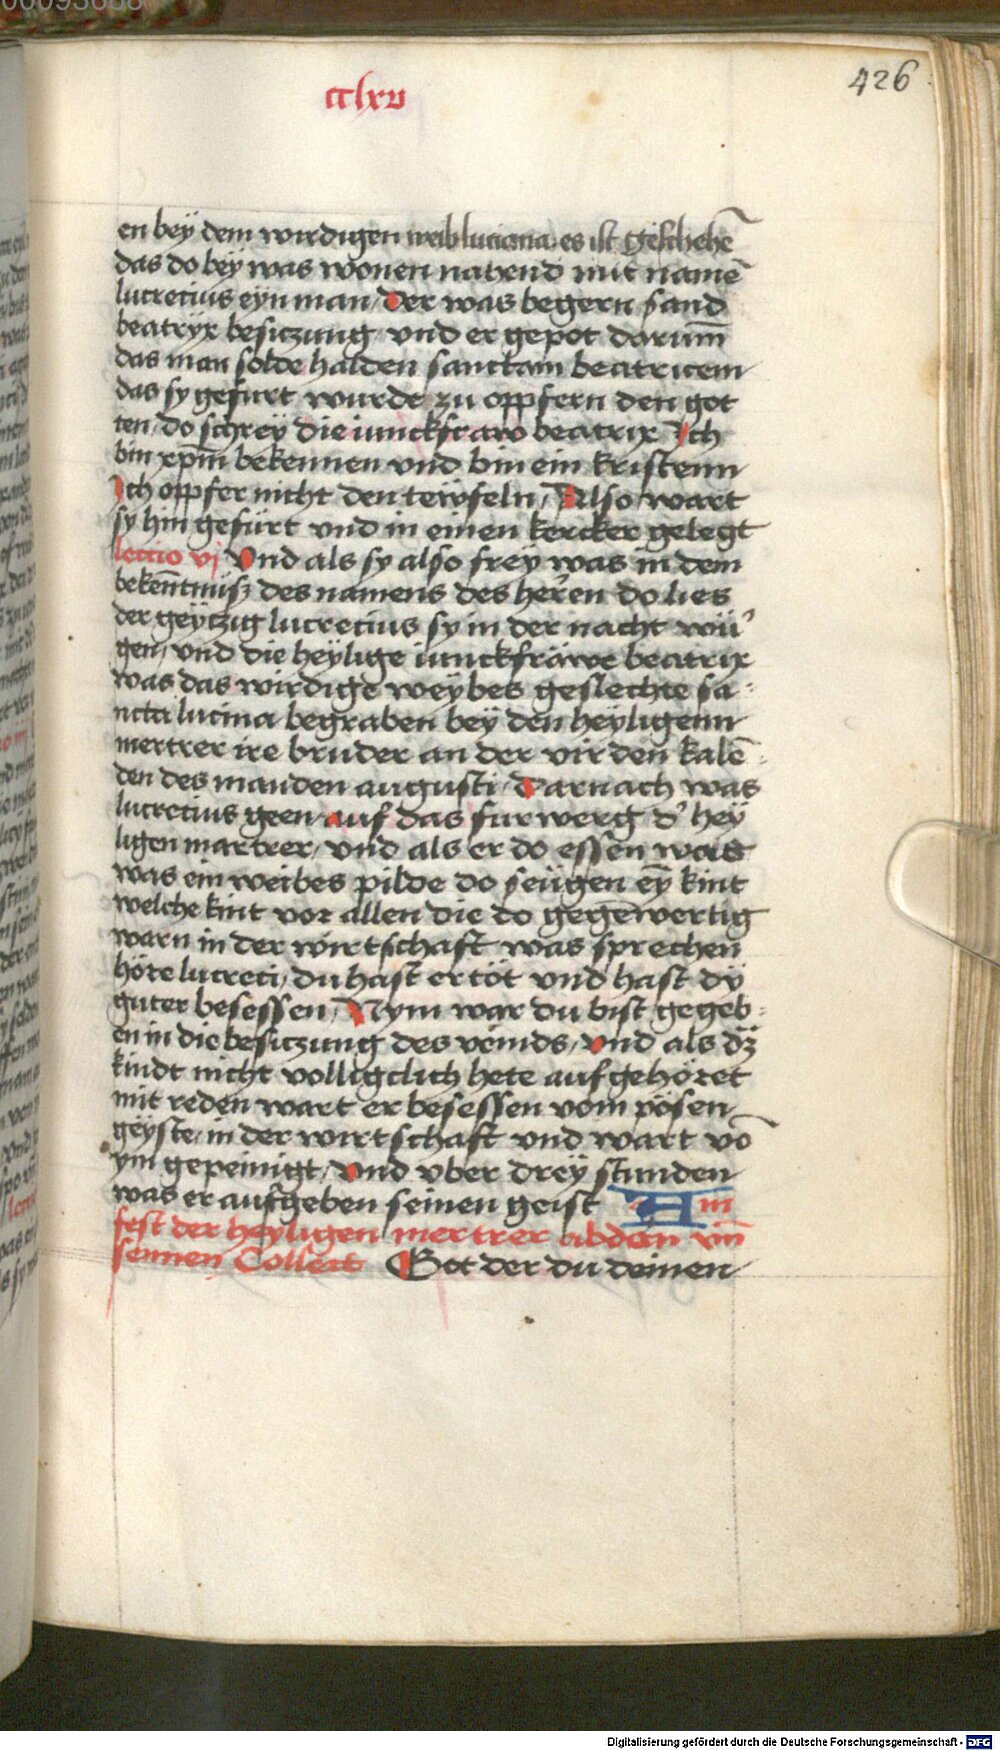 00093688
cclxv
426
en bey dem wirdigen weib luciana. es ist geschehē
das do bey was wonen nahend mit namē
lucretius eyn man / Der was begern sand
beatryx besiczung vnd er gepot darum̄
das man solde halden sanctam beatricem
das sy gefurt wurde zu oppfern den got
ten / do schrey die iunckfraw beatrix Ich
bin xp̄m bekennen vnd bin ein kristenn
Ich oppfer nicht den teüfeln / Also wart
sy hin gefürt vnd in einen kercker gelegt
lectio vj Vnd als sy also frey was in dem
bekēntnüsz des namens des herren do lies
der geytzig lucretius sy in der nacht wür
gen / vnd die heylige iunckfräwe beatrix
was das wirdige weybes geslechte sa-
ncta lucina begraben bey den heyligenn
mertrer ire bruder an der virden kalē-
den des manden augusti / Darnach was
lucretius geen auf das furwerg d' hey
ligen martrer / vnd als er do essen was
was ein weibes pilde do seügen eȳ kint
welche kint vor allen die do gegēwertig
warn in der wirtschaft was sprechen
höre lucreti / du hast ertöt vnd hast dy
guter besessen / Nym war du bist gegeb-
en in die besiczung des veinds / vnd als dz
kindt nicht volligclich hete aufgehöret
mit reden wart er besessen vom pösen
geyste / in der wirtschaft vnd wart vō
ym gepeinigt / vnd vber drey stunden
was er aufgeben seinen geist Am
fest der heyligen mertrer abdon vn̄
sennen Collect Got der du deinen
Digitalisierung gefördert durch die Deutsche Forschungsgemeinschaft - DFG